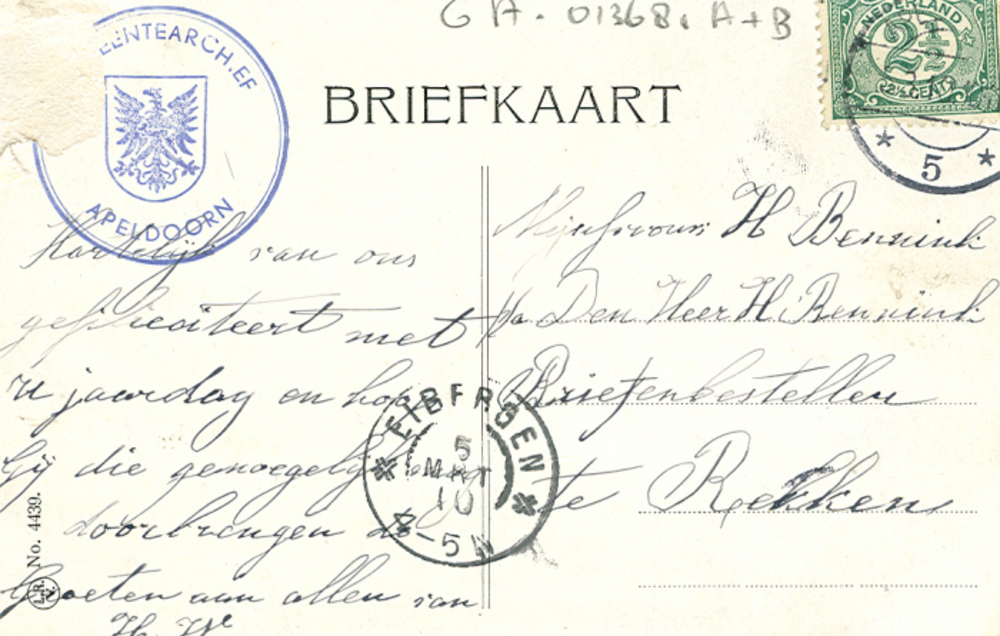 GA. 01368. A+B
ENTEARCH.EF
APELDOORN
BRIEFKAART
NEDERLAND
2½
2½ CENT
5
Hartelijk van ons
gefeliciteert met
u jaardag en hoop
Gij die genoegelijk
doorbrengen
Groeten aan allen van
H. W
Mejufvrouw H Bennink
p/a Den Heer H Bennink
Briefenbesteller
te Rekken
EIBERGEN
5
MRT
10
4-5 N
No. 4439.